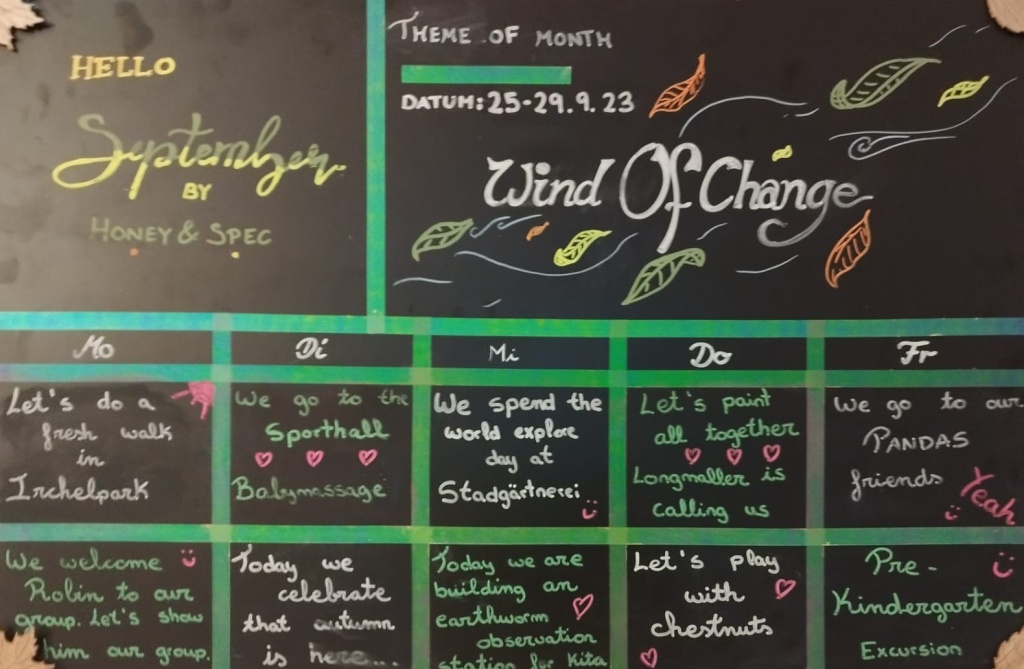 HELLO
September
BY
HONEY & SPEC
THEME OF MONTH
DATUM: 25-29.9.23
Wind Of Change
Mo
Di
Mi
Do
Fr
Let's do a
fresh walk
in
Irchelpark
We go to the
Sporthall
Babymassage
We spend the
world explore
day at
Stadgärtnerei
Let's paint
all together
Longmaller is
calling us
We go to our
PANDAS
friends
Yeah
We welcome
Robin to our
group. Let's show
him our group.
Today we
celebrate
that autumn
is here...
Today we are
building an
earthworm
observation
station for Kita
Let's play
with
chestnuts
Pre-
Kindergarten
Excursion